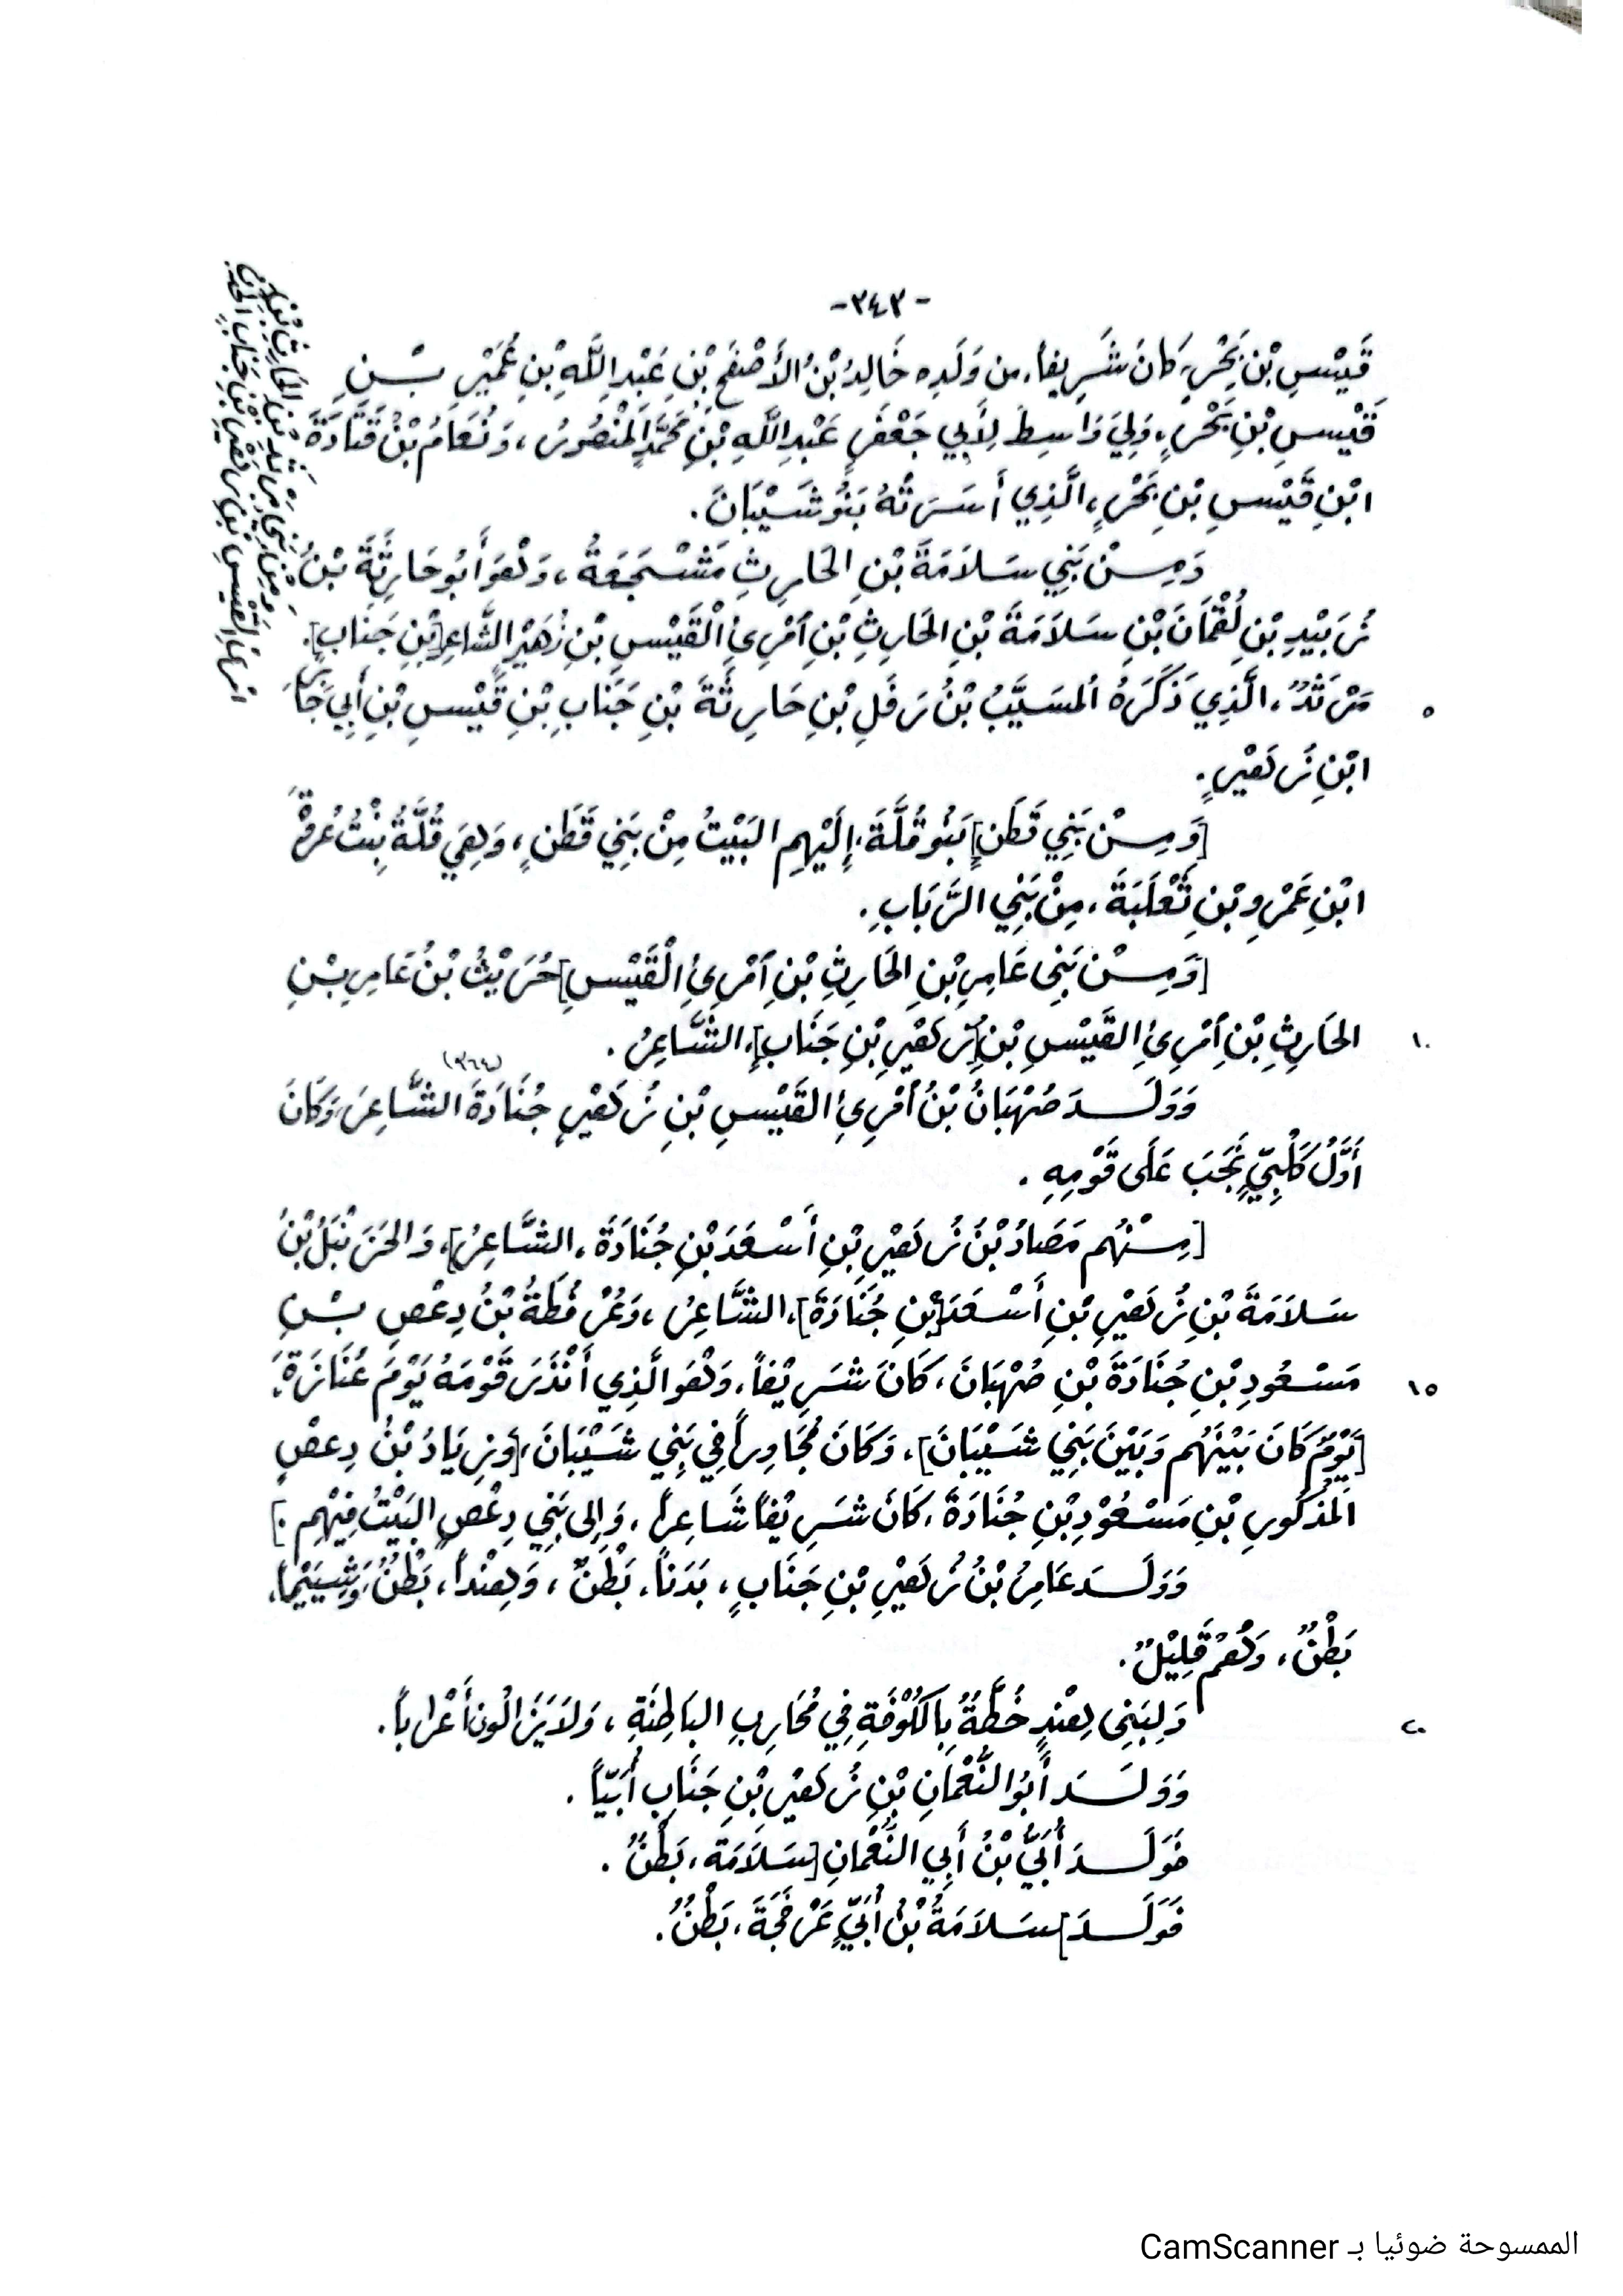 -٣٤٣-
قَيْسِ بْنِ بَحْرٍ، كَانَ شَرِيفاً، من وَلَدِه خَالِدُ بْنُ الأَصْفَحِ بْنِ عَبْدِ اللَّهِ بْنِ عُمَيْرِ بْنِ
قَيْسِ بْنِ بَحْرٍ، وَلِيَ وَاسِطَ لِأَبِي جَعْفَرٍ عَبْدِ اللَّهِ بْنِ مُحَمَّدٍ المَنْصُورُ، وَنُعَامُ بْنُ قَتَادَةَ
ابْنِ قَيْسِ بْنِ بَحْرٍ، الَّذِي أَسَرَتْهُ بَنُو شَيْبَانَ.
وَمِنْ بَنِي سَلَامَةَ بْنِ الحَارِثِ مَشْجَعَةُ، وَهُوَ أَبُو حَارِثَةَ بْنُ
زُبَيْدِ بْنِ لُقْمَانَ بْنِ سَلَامَةَ بْنِ الحَارِثِ بْنِ امْرِئِ الْقَيْسِ بْنِ زُهَيْرٍ الشَّاعِرِ [بْنِ جَنَابٍ].
مَرْثَدٌ، الَّذِي ذَكَرَهُ المُسَيَّبُ بْنُ رَفَلِ بْنِ حَارِثَةَ بْنِ جَنَابِ بْنِ قَيْسِ بْنِ أَبِي جَابِرٍ
ابْنِ زُهَيْرٍ.
[وَمِنْ بَنِي قَطَنٍ] بَنُو قُلَّةَ، إِلَيْهِم البَيْتُ مِنْ بَنِي قَطَنٍ، وَهِيَ قُلَّةُ بِنْتُ عُرفْ
ابْنِ عَمْرِو بْنِ ثَعْلَبَةَ، مِنْ بَنِي الرَّبَابِ.
[وَمِنْ بَنِي عَامِرِ بْنِ الحَارِثِ بْنِ امْرِئِ الْقَيْسِ] حُرَيْثُ بْنُ عَامِرِ بْنِ
الحَارِثِ بْنِ امْرِئِ القَيْسِ بْنِ [زُهَيْرِ بْنِ جَنَابٍ]، الشَّاعِرُ.
وَوَلَدَ صُهْبَانُ بْنُ امْرِئِ القَيْسِ بْنِ زُهَيْرٍ جُنَادَةَ (٣٦٤) الشَّاعِرَ، وَكَانَ
أَوَّلُ كَلْبِيٍّ نَجَبَ عَلَى قَوْمِهِ.
[مِنْهُم مَصَادُ بْنُ زُهَيْرِ بْنِ أَسْعَدَ بْنِ جُنَادَةَ، الشَّاعِرُ]، وَالحَزَنْبَلُ بْنُ
سَلَامَةَ بْنِ زُهَيْرِ بْنِ أَسْعَدَ [بْنِ جُنَادَةَ]، الشَّاعِرُ، وَعُرْفُطَةُ بْنُ دِعْصِ بْنِ
مَسْعُودِ بْنِ جُنَادَةَ بْنِ صُهْبَانَ، كَانَ شَرِيْفاً، وَهُوَ الَّذِي أَنْذَرَ قَوْمَهُ يَوْمَ عُنَازَةَ،
[يَوْمٌ كَانَ بَيْنَهُم وَبَيْنَ بَنِي شَيْبَانَ]، وَكَانَ مُجَاوِراً فِي بَنِي شَيْبَانَ، [وَزِيَادُ بْنُ دِعصٍ
المَذْكُورِ بْنِ مَسْعُوْدِ بْنِ جُنَادَةَ، كَانَ شَرِيْفاً شَاعِراً، وَإِلى بَنِي دِعْصٍ البَيْتُ فِيْهِم.]
وَوَلَدَ عَامِرُ بْنُ زُهَيْرِ بْنِ جَنَابٍ، بَدَنَاً، بَطْنٌ، وَهِنْداً، بَطْنٌ، وَشِيَيْماً،
بَطْنٌ، وَهُمْ قَلِيْلٌ.
وَلِبَنِي هِنْدٍ خُطَّةٌ بِالكُوْفَةِ فِي مُحَارِبِ البَاطِنَةِ، وَلَا يَزَالُونَ أَعْرَاباً.
وَوَلَدَ أَبُو النُّعْمَانِ بْنِ زُهَيْرِ بْنِ جَنَابٍ أُبَيّاً.
فَوَلَدَ أُبَيُّ بْنُ أَبِي النُّعْمَانِ [سَلَامَةَ، بَطْنٌ.
فَوَلَدَ] سَلَامَةُ بْنُ أُبَيٍّ عَرْفَجَةَ، بَطْنٌ.
٥
١٠
١٥
٢٠
وَمِنْ بَنِي مَرْثَدِ بْنِ الحَارِثِ
امْرِئِ القَيْسِ بْنِ زُهَيْرِ بْنِ جَنَابٍ
الممسوحة ضوئيا بـ CamScanner